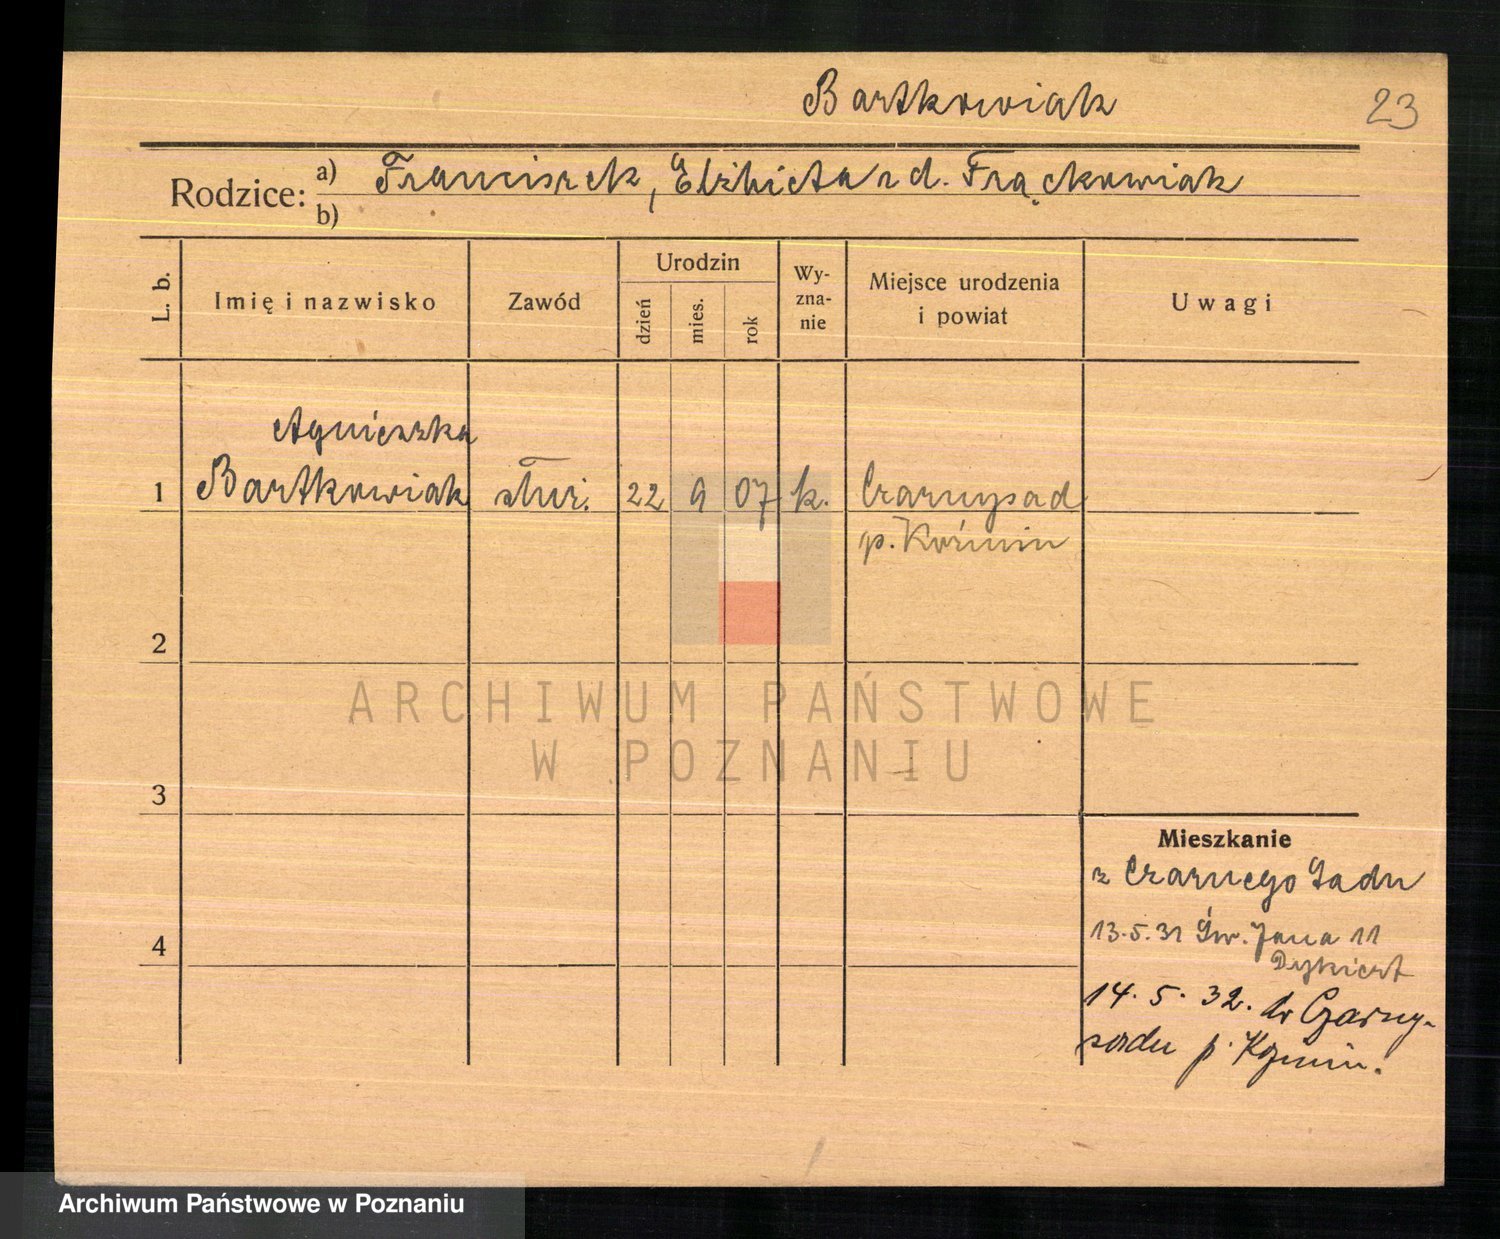 Bartkowiak
23
Rodzice: a) Franciszek, Elżbieta z d. Frąckowiak
b)
L. b.
Imię i nazwisko
Zawód
Urodzin
dzień
mies.
rok
Wy-
zna-
nie
Miejsce urodzenia
i powiat
Uwagi
Agnieszka
1 Bartkowiak służ. 22 9 07 k. Czarnysad
p. Koźmin
2
3
4
Mieszkanie
z Czarnego Sadu
13.5.31 Św. Jana 11
14. 5. 32. do Czarny-
sadu p. Kozmin.
ARCHIWUM PAŃSTWOWE
W POZNANIU
Archiwum Państwowe w Poznaniu